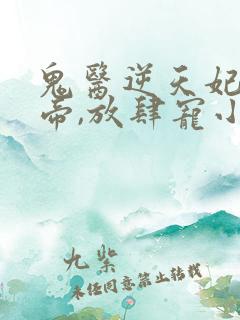 鬼醫逆天妃
帝,放肆寵小
九紫
未经同意禁止转载